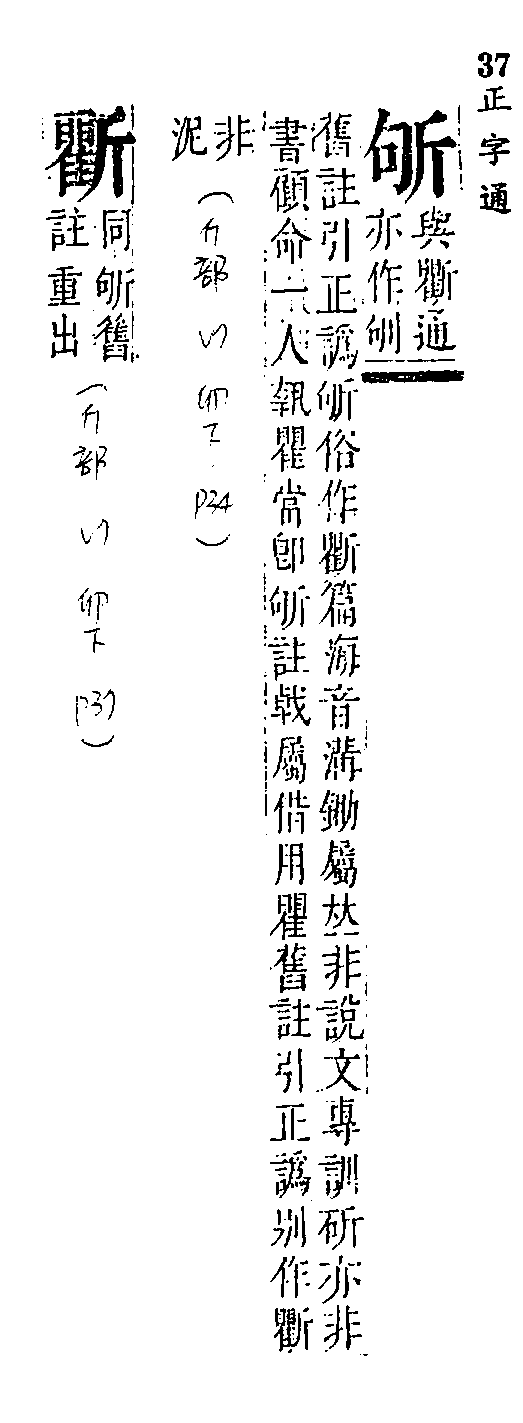 37 正字通
斪
與通
亦作
舊註引正譌斪俗作篇海音溝鋤屬𠀤非說文專訓斫亦非
書顧命一人執瞿當卽斪註戟屬借用瞿舊註引正譌別作
非
泥
(斤部 い 卯下 P34)
同斪舊
註重出
(斤部 い 卯下 P37)